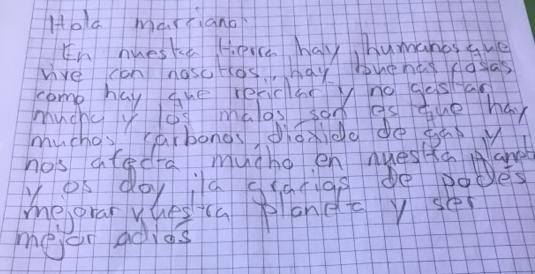 Hola marciano
En nuestra tierra hay humanos que
vive con nosotros, hay buenas cosas
como hay que reciclar y no gastar
mucho y los malos son es que hay
muchos carbonos, dióxido de gas y
nos afecta mucho en nuestra planet
y os doy la gracias de podes
mejorar vuestra planeta y ser
mejor adios